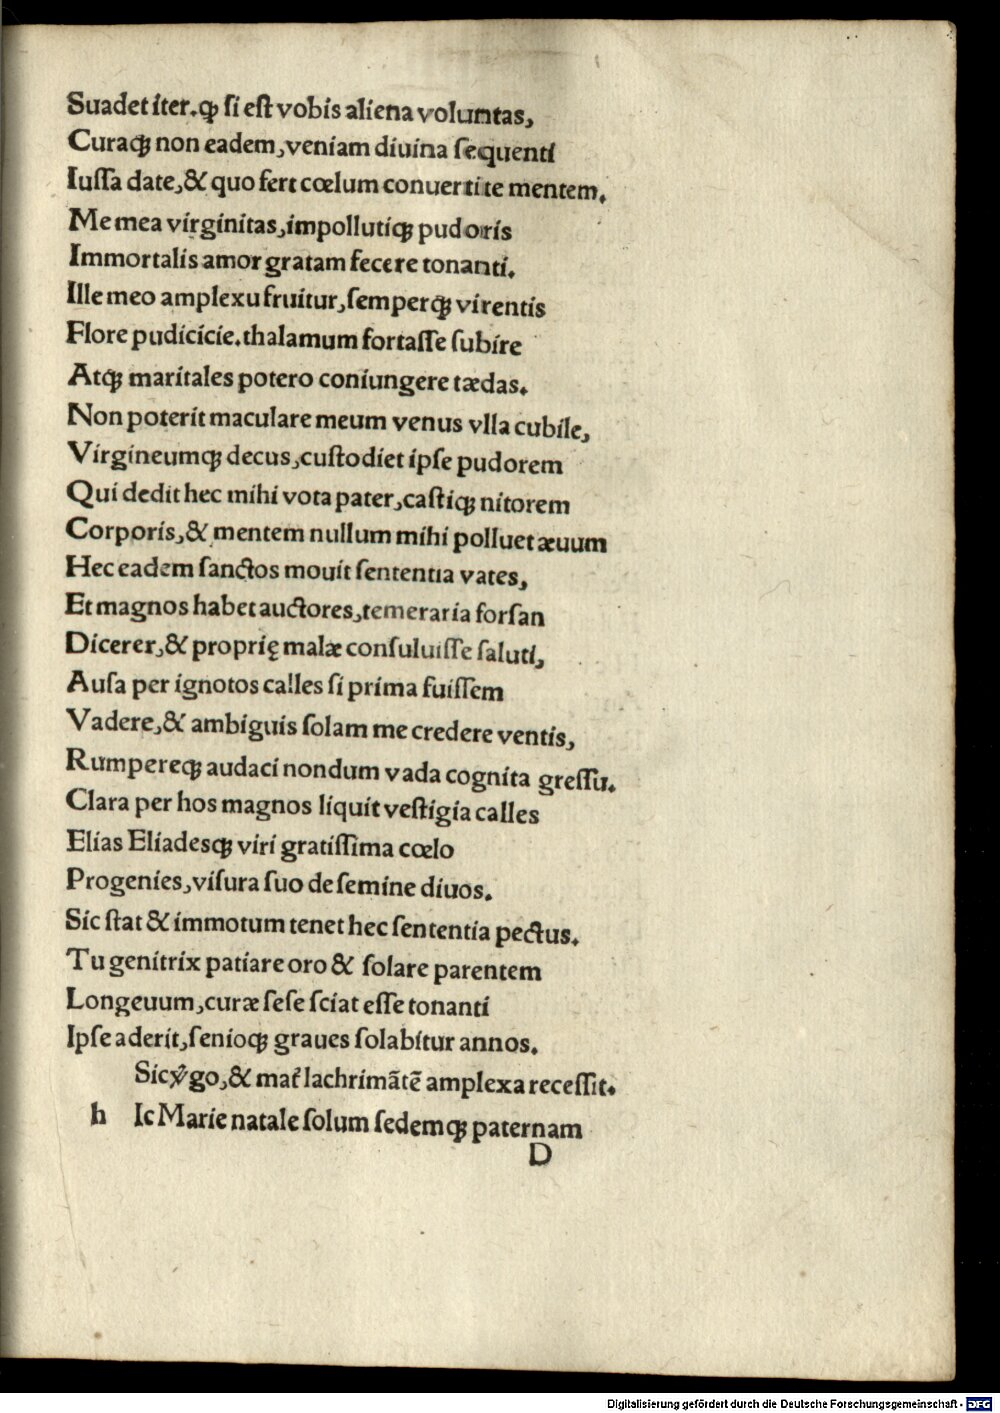 Suadet iter.ꝙ ſi eſt vobis aliena voluntas,
Curaqꝫ non eadem,veniam diuina ſequenti
Iuſſa date,& quo fert cœlum conuertite mentem.
Me mea virginitas,impollutiqꝫ pudoris
Immortalis amor gratam fecere tonanti.
Ille meo amplexu fruitur,ſemperqꝫ virentis
Flore pudicicie.thalamum fortaſſe ſubire
Atqꝫ maritales potero coniungere tædas.
Non poterit maculare meum venus vlla cubile,
Virgineumqꝫ decus,cuſtodiet ipſe pudorem
Qui dedit hec mihi vota pater,caſtiqꝫ nitorem
Corporis,& mentem nullum mihi polluet æuum
Hec eadem ſanctos mouit ſententia vates,
Et magnos habet auctores,temeraria forſan
Dicerer,& proprię malæ conſuluiſſe ſaluti,
Auſa per ignotos calles ſi prima fuiſſem
Vadere,& ambiguis ſolam me credere ventis,
Rumpereqꝫ audaci nondum vada cognita greſſu.
Clara per hos magnos liquit veſtigia calles
Elias Eliadesqꝫ viri gratiſſima cœlo
Progenies,viſura ſuo de ſemine diuos.
Sic ſtat & immotum tenet hec ſententia pectus.
Tu genitrix patiare oro & ſolare parentem
Longeuum,curæ ſeſe ſciat eſſe tonanti
Ipſe aderit,ſenioqꝫ graues ſolabitur annos.
Sic v̓go,& mat̓ lachrimãtẽ amplexa receſſit.
h Ic Marie natale ſolum ſedemqꝫ paternam
D
Digitalisierung gefördert durch die Deutsche Forschungsgemeinschaft - DFG